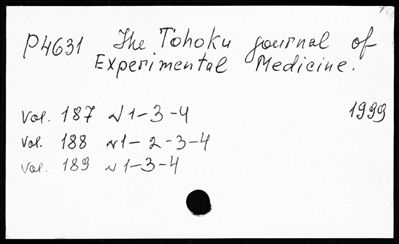 P4631 The Tohoku journal of
Experimental Medicine.
Vol. 187 N 1-3-4 1999
Vol. 188 N 1-2-3-4
Vol. 189 N 1-3-4